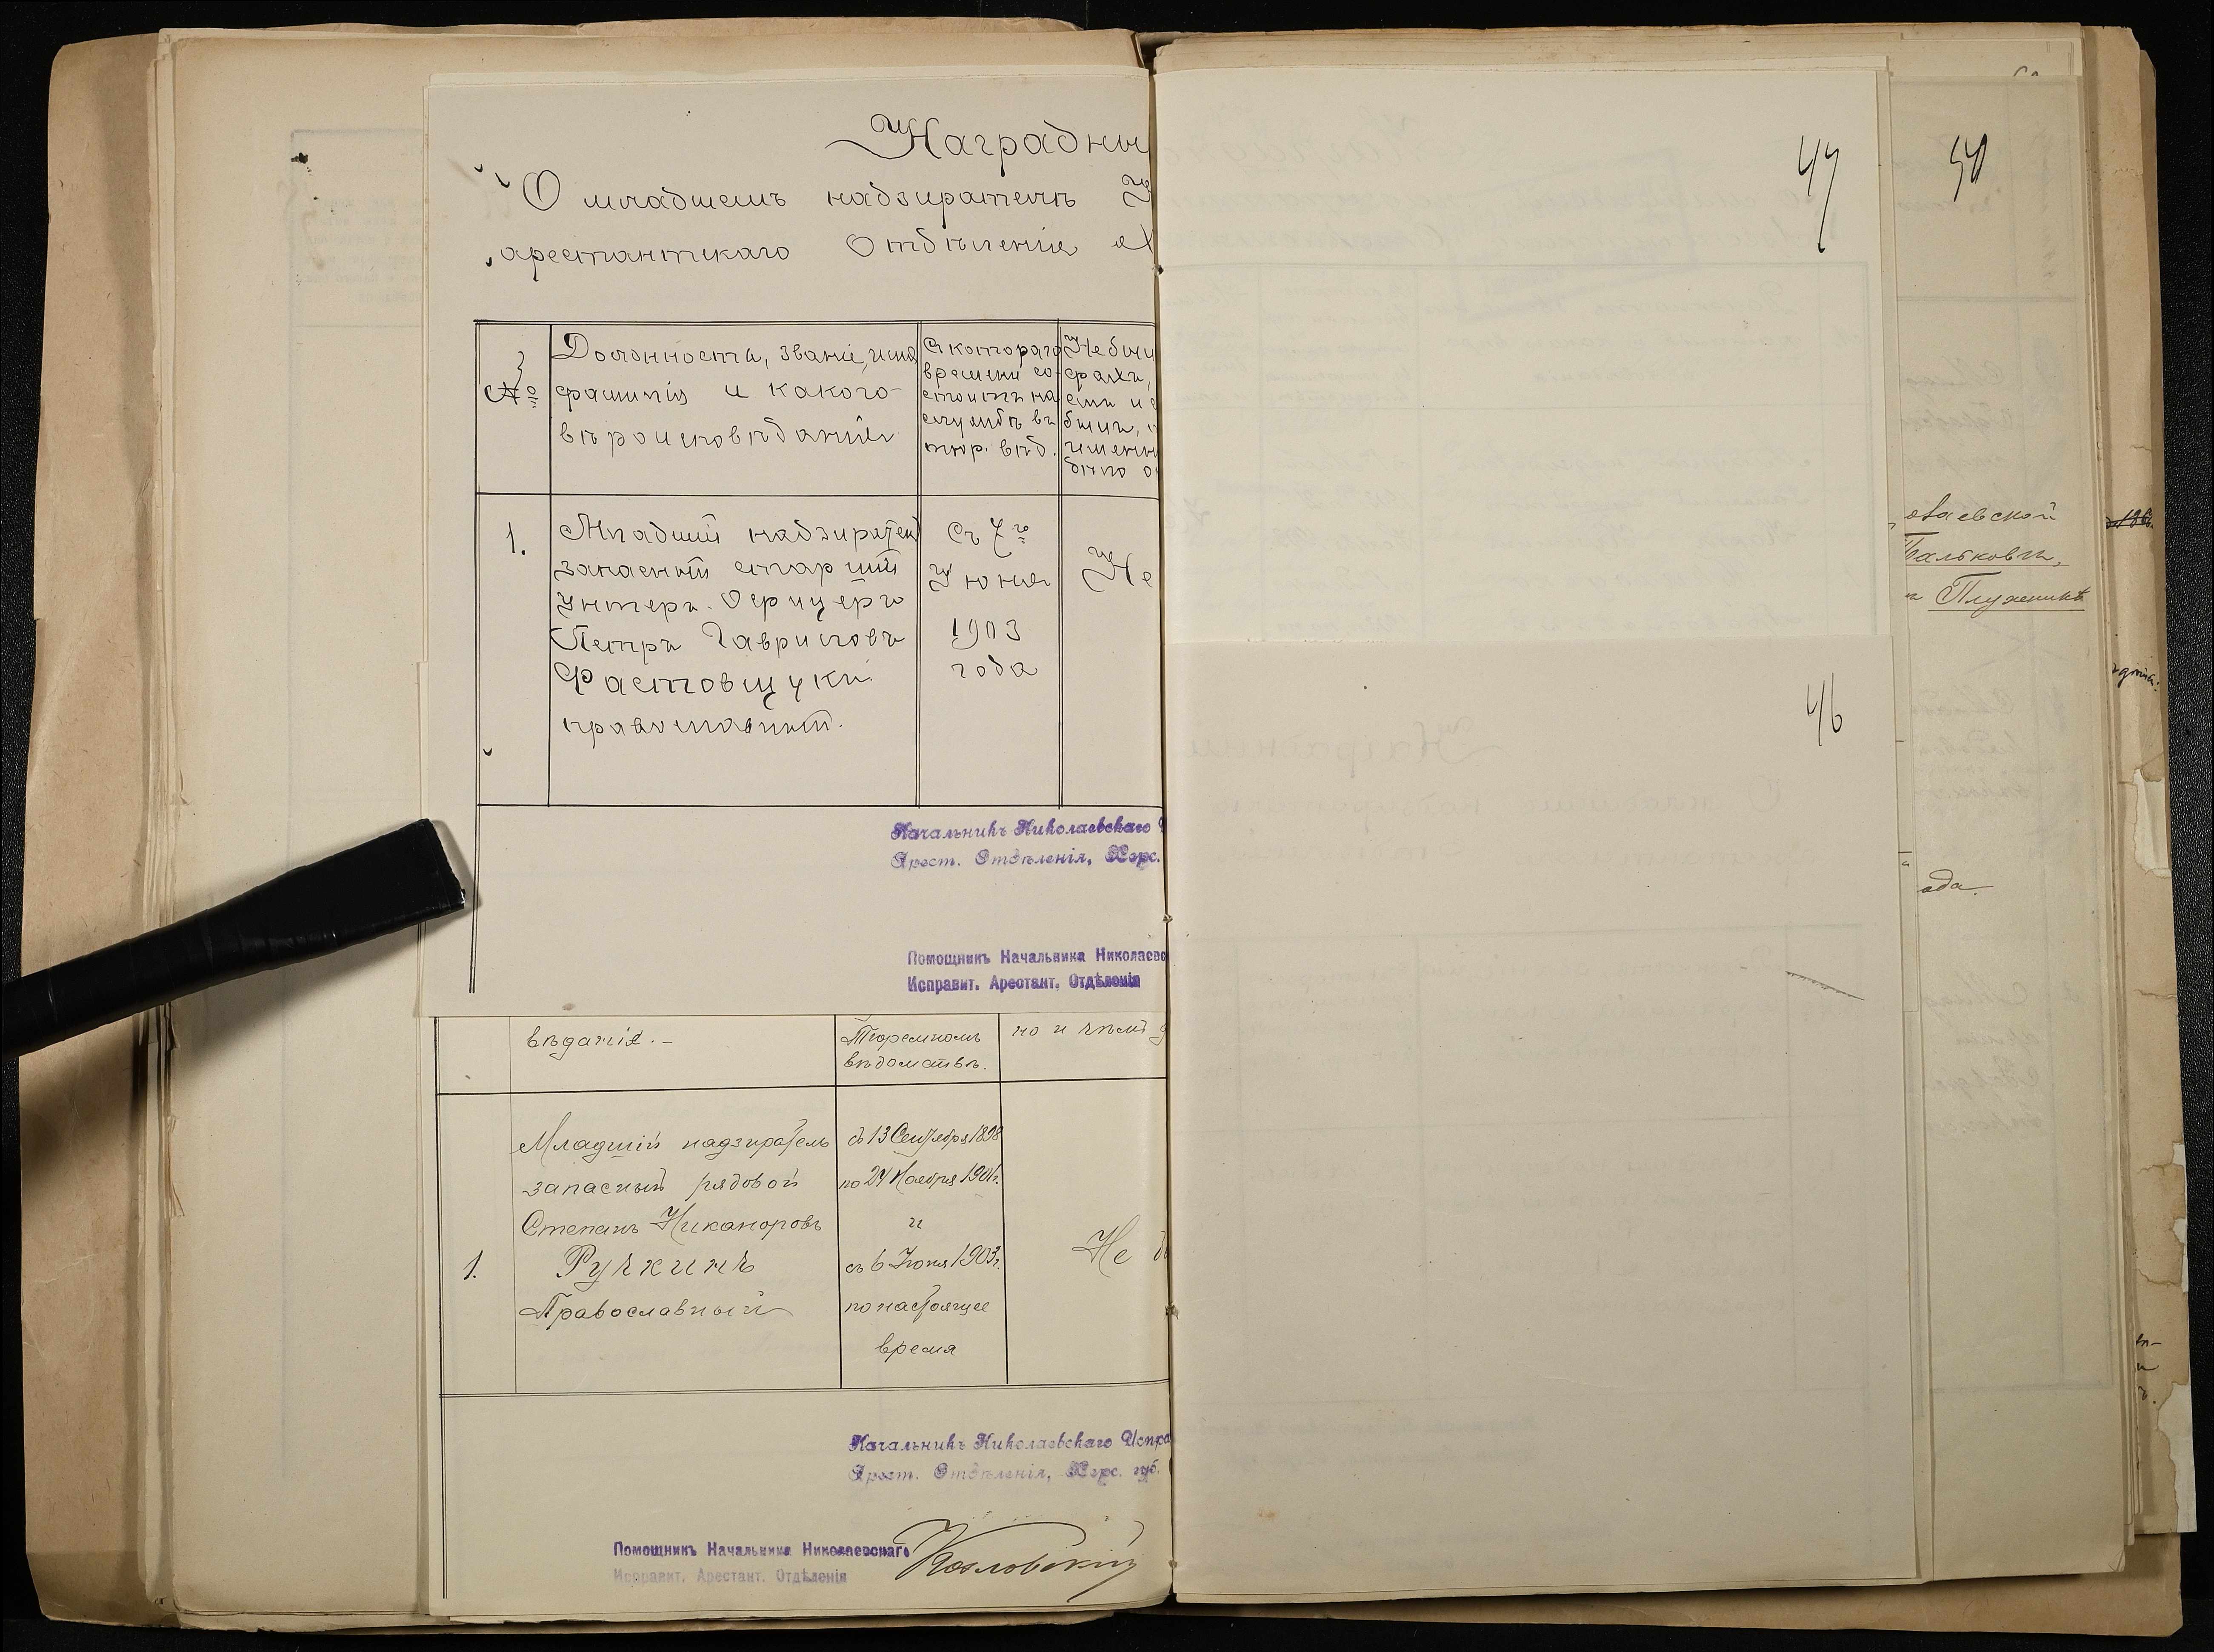 Наградны
О младшемъ надзирателѣ
арестантскаго Отдѣленія
№
Должность, званіе, имя
фамилія и какого
вѣроисповѣданія
Съ котораго
времени со-
стоитъ на
службѣ въ
тюр. вѣд.
Не был
1.
Младшій надзиратель
запасный старшій
унтеръ-офицеръ
Петръ Гавриловъ
православный.
Съ 7го
Іюня
1903
года
Не
Начальникъ Николаевскаго
Арест. Отдѣленія, Херс.
Помощникъ Начальника Николаевс
Исправит. Арестант. Отдѣленія
вѣданія.-
Тюремномъ
вѣдомствѣ.
но и чѣмъ
1.
Младшій надзиратель
запасный рядовой
Степанъ Никаноровъ
Ручкинъ
Православный
съ 13 Сентября 1898
по 24 Ноября 1901г.
и
съ 6 Іюня 1903г.
по настоящее
время
Не
Начальникъ Николаевскаго Испра
Арест. Отдѣленія, Херс. губ.
Помощникъ Начальника Николаевскаго
Исправит. Арестант. Отдѣленія
Козловскій
47
46
лаевской
ада.